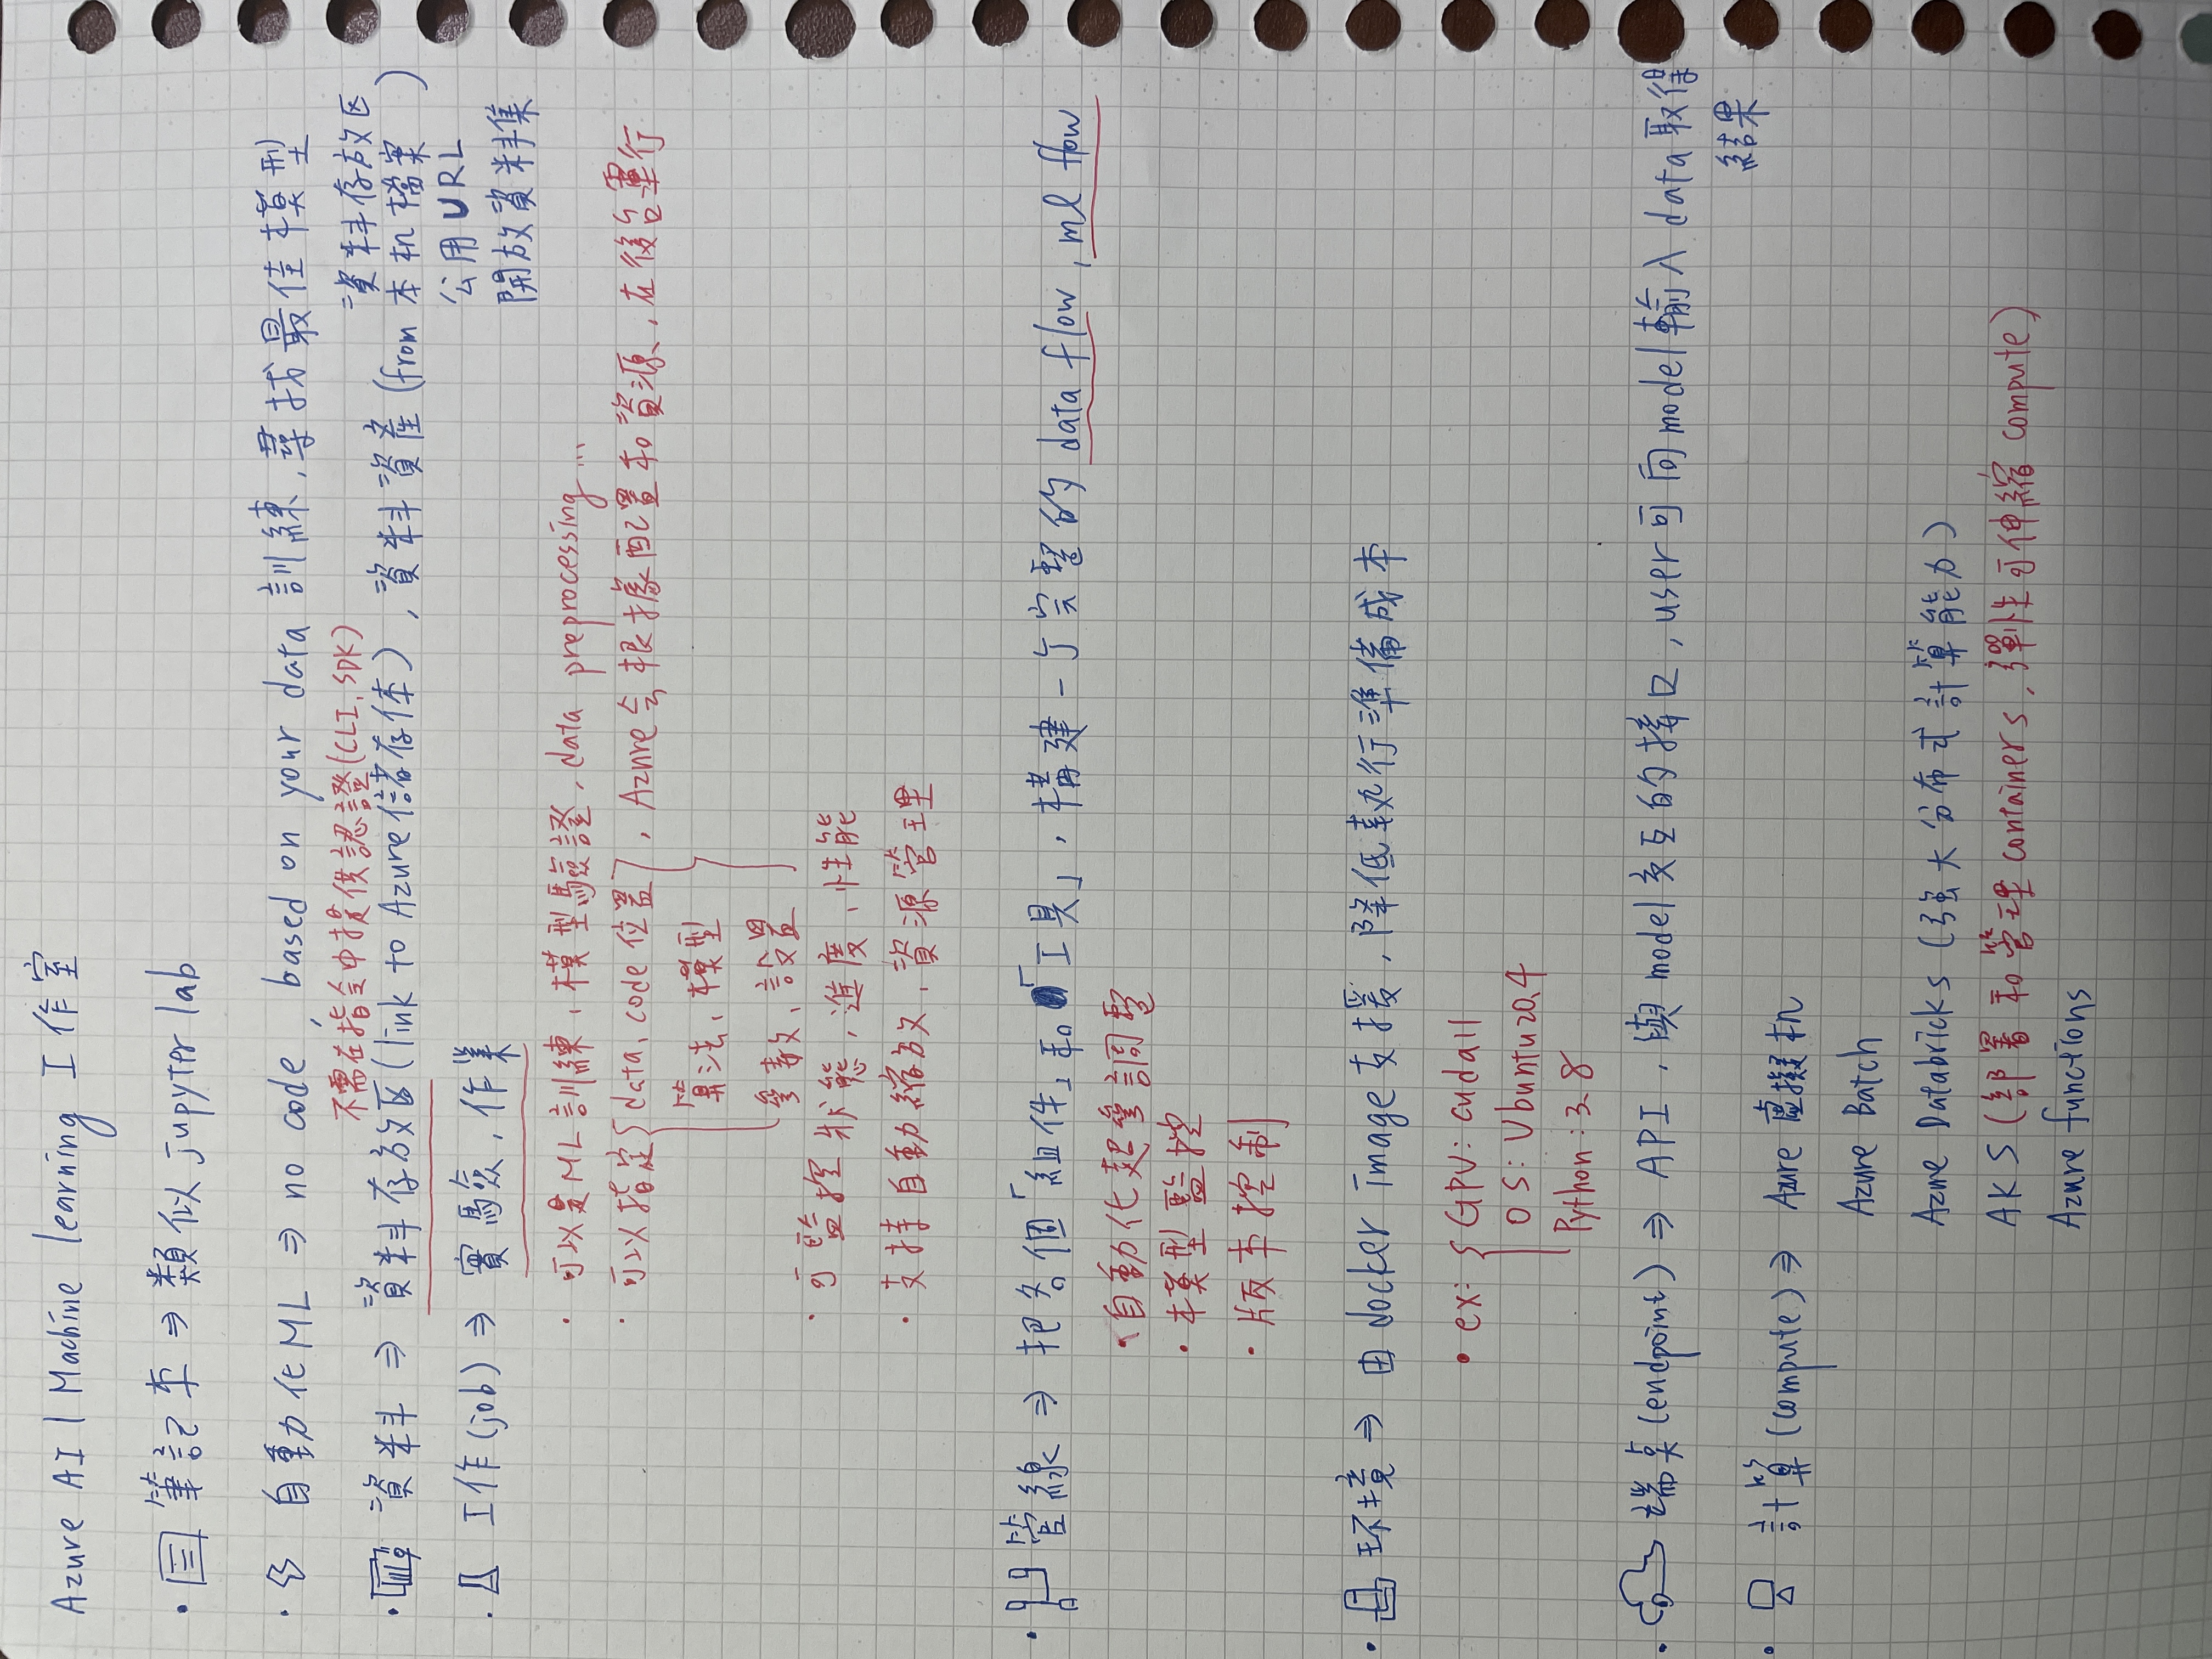 Azure AI | Machine learning 工作室
· 筆記本 ⇒ 類似 jupyter lab
· 自動化ML ⇒ no code, based on your data 訓練, 尋找最佳模型
不需在指令中提供認證(CLI, SDK)
· 資料 ⇒ 資料存放区(link to Azure儲存体), 資料資產(from 本机檔案)
資料存放区
公用URL
開放資料集
· 工作(job) ⇒ 實驗, 作業
· 可以是ML訓練, 模型驗證, data preprocessing...
· 可以指定{data, code 位置}, Azure会根據配置和資源, 在後台運行
算法, 模型
參数, 設置
· 可監控狀態, 進度, 性能
· 支持自動縮放, 資源管理
· 管線 ⇒ 把各個「組件」和「工具」, 構建一个完整的 data flow, ml flow
· 自動化起參調整
· 模型監控
· 版本控制
· 环境 ⇒ 由 docker image 支援, 降低執行準備成本
· ex: { GPU: cuda11
OS: Ubuntu20.4
Python: 3.8
· 端桌(endpoint) ⇒ API, 與 model 交互的接口, user可向model輸入 data 取得
結果
· 計算(compute) ⇒ Azure 虛擬机
Azure Batch
Azure Databricks (強大分布式計算能力)
AKS (部署和管理 containers, 彈性可伸縮 compute)
Azure functions